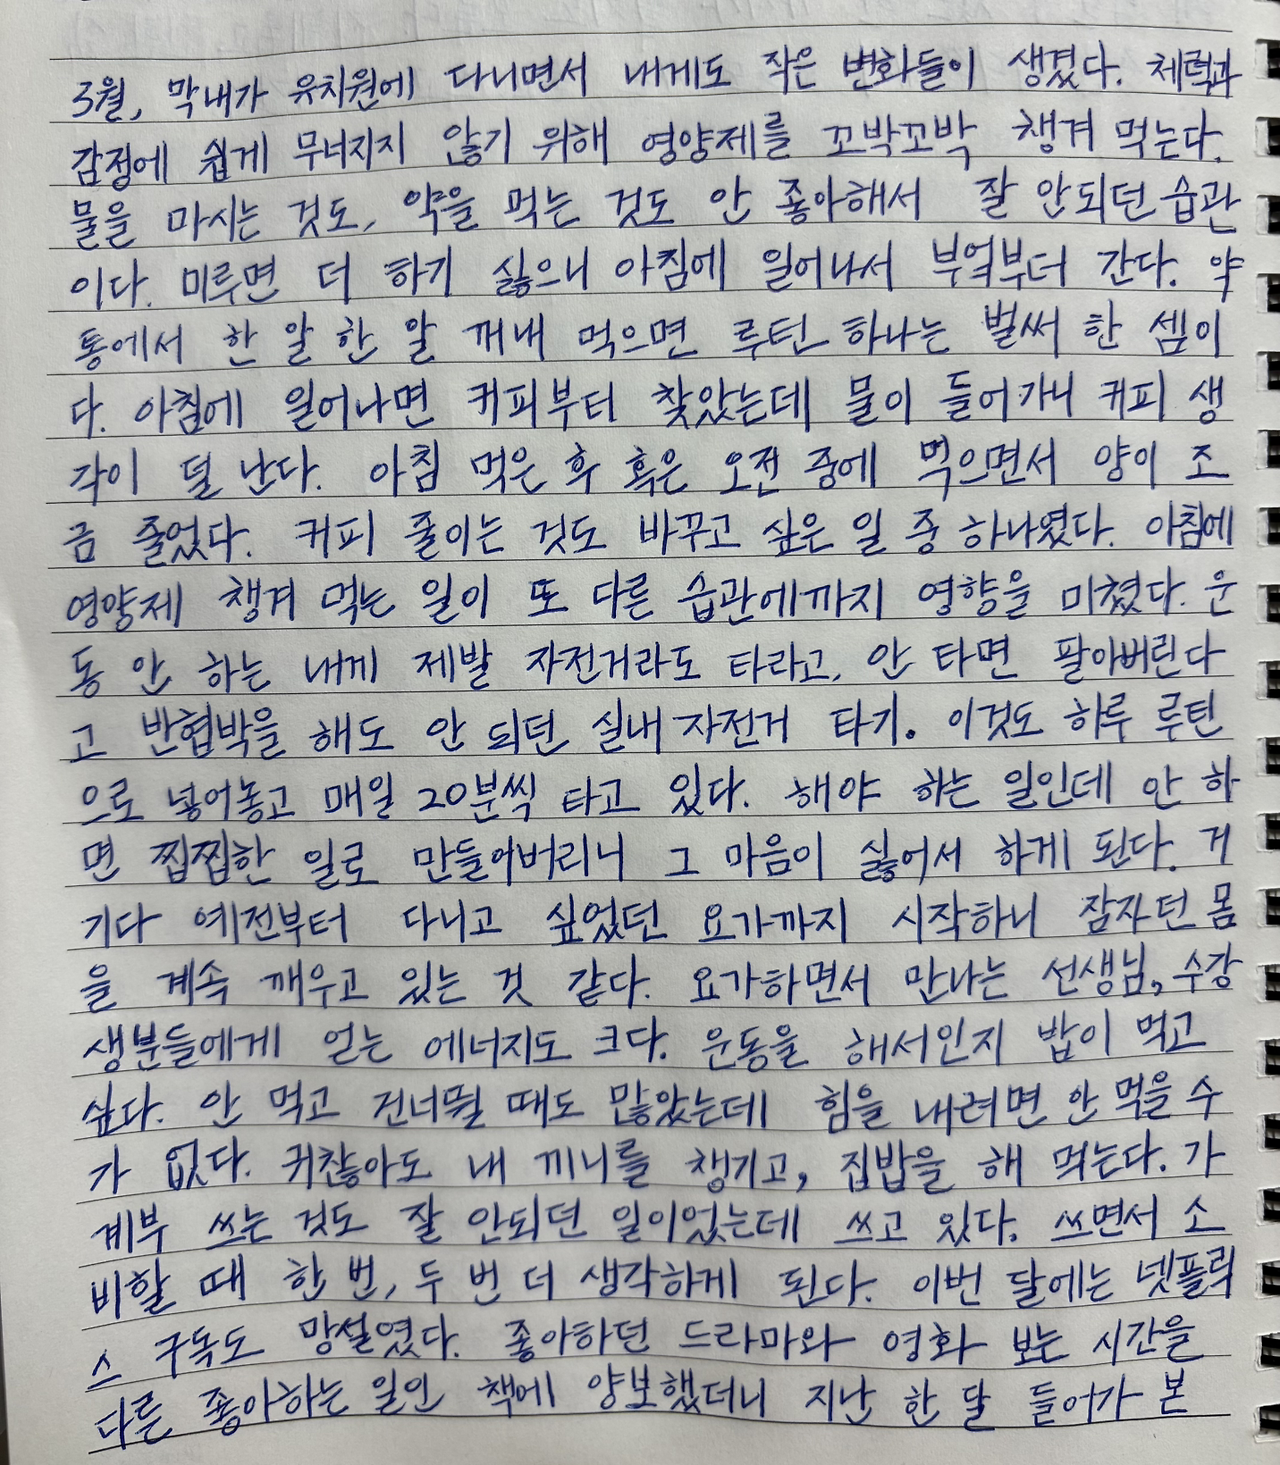 3월, 막내가 유치원에 다니면서 내게도 작은 변화들이 생겼다. 체력과
감정에 쉽게 무너지지 않기 위해 영양제를 꼬박꼬박 챙겨 먹는다.
물을 마시는 것도, 약을 먹는 것도 안 좋아해서 잘 안되던 습관
이다. 미루면 더 하기 싫으니 아침에 일어나서 부엌부터 간다. 약
통에서 한 알 한 알 꺼내 먹으면 루틴 하나는 벌써 한 셈이
다. 아침에 일어나면 커피부터 찾았는데 물이 들어가니 커피 생
각이 덜 난다. 아침 먹은 후 혹은 오전 중에 먹으면서 양이 조
금 줄었다. 커피 줄이는 것도 바꾸고 싶은 일 중 하나였다. 아침에
영양제 챙겨 먹는 일이 또 다른 습관에까지 영향을 미쳤다. 운
동 안 하는 내게 제발 자전거라도 타라고, 안 타면 팔아버린다
고 반협박을 해도 안 되던 실내 자전거 타기. 이것도 하루 루틴
으로 넣어놓고 매일 20분씩 타고 있다. 해야 하는 일인데 안 하
면 찝찝한 일로 만들어버리니 그 마음이 싫어서 하게 된다. 거
기다 예전부터 다니고 싶었던 요가까지 시작하니 잠자던 몸
을 계속 깨우고 있는 것 같다. 요가하면서 만나는 선생님, 수강
생분들에게 얻는 에너지도 크다. 운동을 해서인지 밥이 먹고
싶다. 안 먹고 건너뛸 때도 많았는데 힘을 내려면 안 먹을 수
가 없다. 귀찮아도 내 끼니를 챙기고, 집밥을 해 먹는다. 가
계부 쓰는 것도 잘 안되던 일이었는데 쓰고 있다. 쓰면서 소
비할 때 한 번, 두 번 더 생각하게 된다. 이번 달에는 넷플릭
스 구독도 망설였다. 좋아하던 드라마와 영화 보는 시간을
다른 좋아하는 일인 책에 양보했더니 지난 한 달 들어가 본